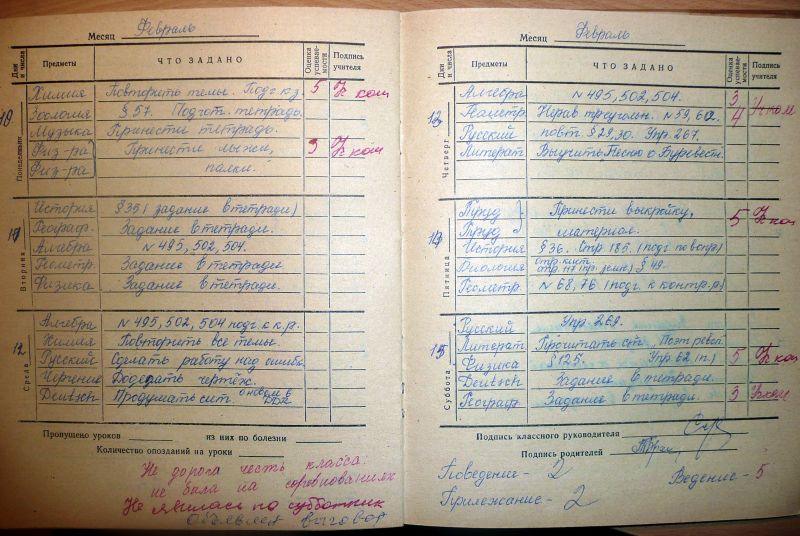 Месяц Февраль
Дни и числа Предметы ЧТО ЗАДАНО Оценка успеваемости Подпись учителя
10 Понедельник
Химия Повторить темы. Подг к з. 5
Зоология § 57. Подгот. тетрадь.
Музыка Принести тетрадь.
Физ-ра Принести лыжи, 3
Физ-ра палки.
11 Вторник
История § 35 (задание в тетради)
Географ. Задание в тетради.
Алгебра № 495, 502, 504.
Геометр. Задание в тетради
Физика Задание в тетради.
12 Среда
Алгебра № 495, 502, 504 подг. к к.р.
Химия Повторить все темы.
Русский Сделать работу над ошибк.
Черчение Доделать чертёж.
Deutsch Продумать сит. о новом в DDR
Пропущено уроков из них по болезни
Количество опозданий на уроки
Не дорога честь класса:
не была на соревнованиях
Не явилась на субботник
Объявлен выговор
Месяц Февраль
Дни и числа Предметы ЧТО ЗАДАНО Оценка успеваемости Подпись учителя
13 Четверг
Алгебра № 495, 502, 504. 3
Геометр. Нерав треугольн. № 59, 62. 4
Русский повт. § 29, 30. Упр. 267.
Литерат. Выучить Песню о Буревестн.
14 Пятница
Труд Принести выкройку, 5
Труд материал.
История § 36. Стр 185. (подг. по вопр)
§ 49.
Геометр. № 68, 76 (подг. к контр.р)
15 Суббота
Русский Упр. 269.
Литерат. Прочитать ст. „Поэт револ.
Физика § 125. Упр 62 (п.) 5
Deutsch Задание в тетради.
Географ Задание в тетради. 3
Подпись классного руководителя
Подпись родителей
Поведение - 2 Ведение - 5
Прилежание - 2